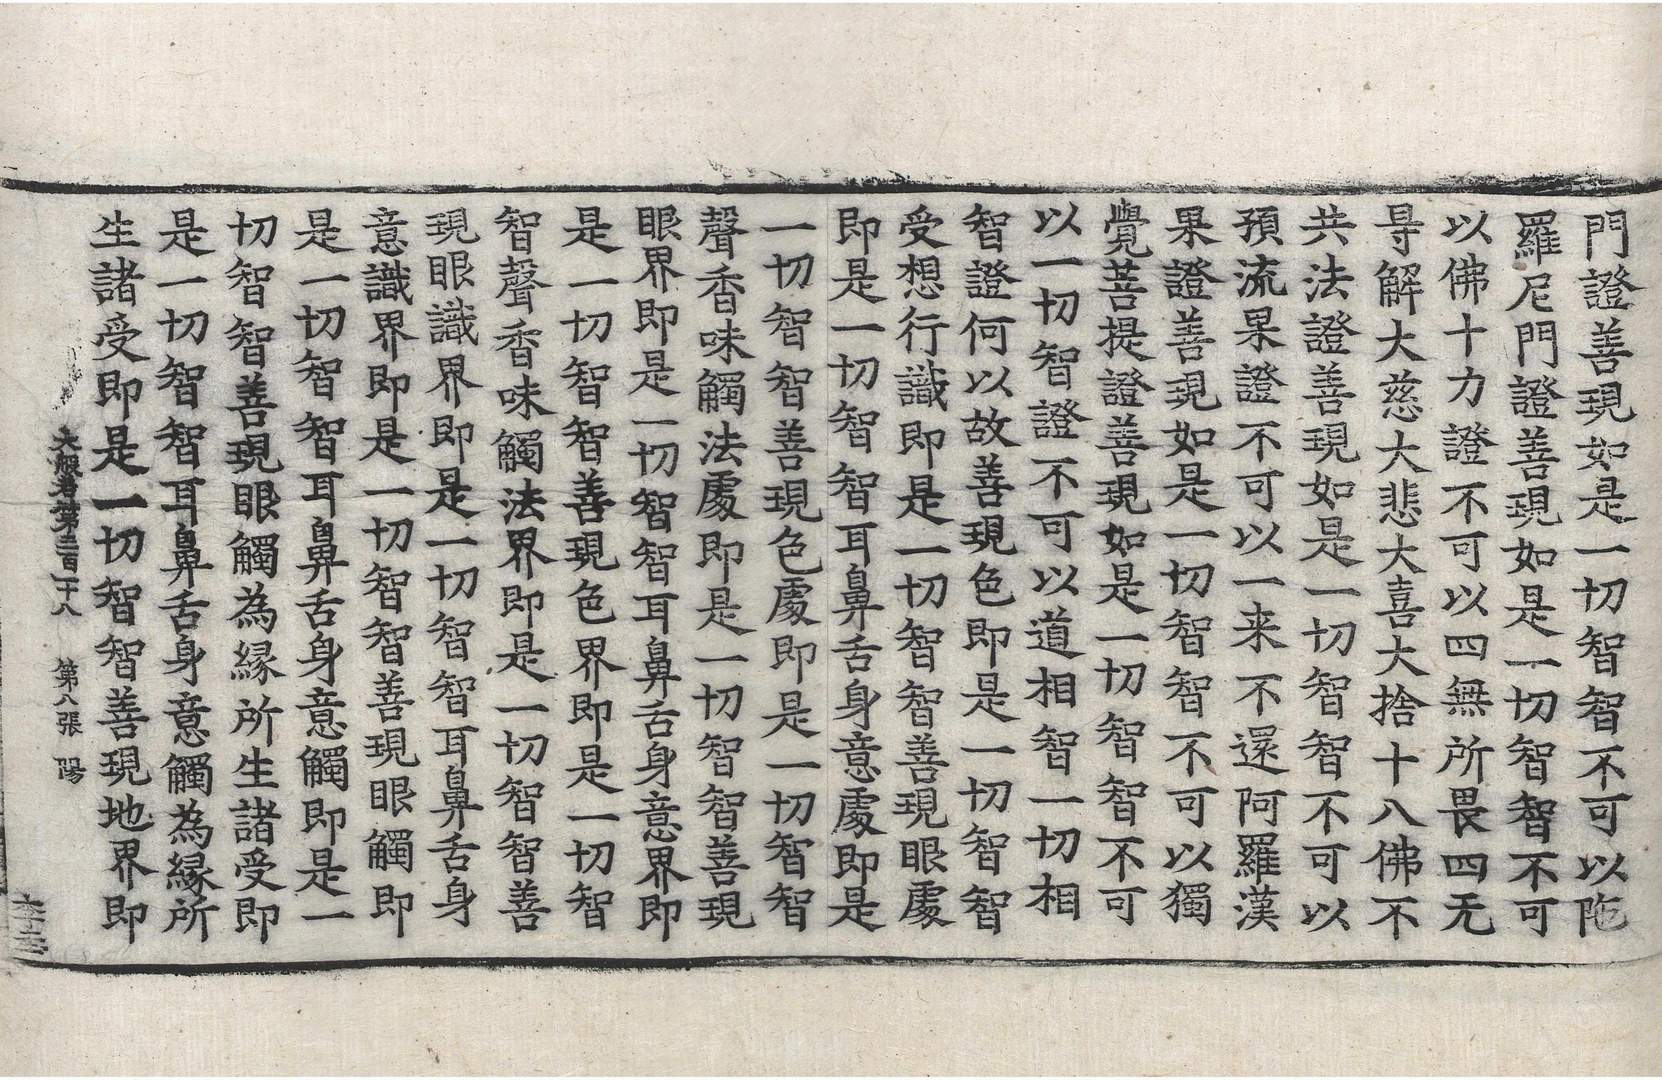 門證善現如是一切智智不可以陁
羅尼門證善現如是一切智智不可
以佛十力證不可以四無所畏四无
㝵解大慈大悲大喜大捨十八佛不
共法證善現如是一切智智不可以
預流果證不可以一来不還阿羅漢
果證善現如是一切智智不可以獨
覺菩提證善現如是一切智智不可
以一切智證不可以道相智一切相
智證何以故善現色即是一切智智
受想行識即是一切智智善現眼處
即是一切智智耳鼻舌身意處即是
一切智智善現色處即是一切智智
聲香味觸法處即是一切智智善現
眼界即是一切智智耳鼻舌身意界即
是一切智智善現色界即是一切智
智聲香味觸法界即是一切智智善
現眼識界即是一切智智耳鼻舌身
意識界即是一切智智善現眼觸即
是一切智智耳鼻舌身意觸即是一
切智智善現眼觸為緣所生諸受即
是一切智智耳鼻舌身意觸為緣所
生諸受即是一切智智善現地界即
大般若第三百一十八 第八張 陽